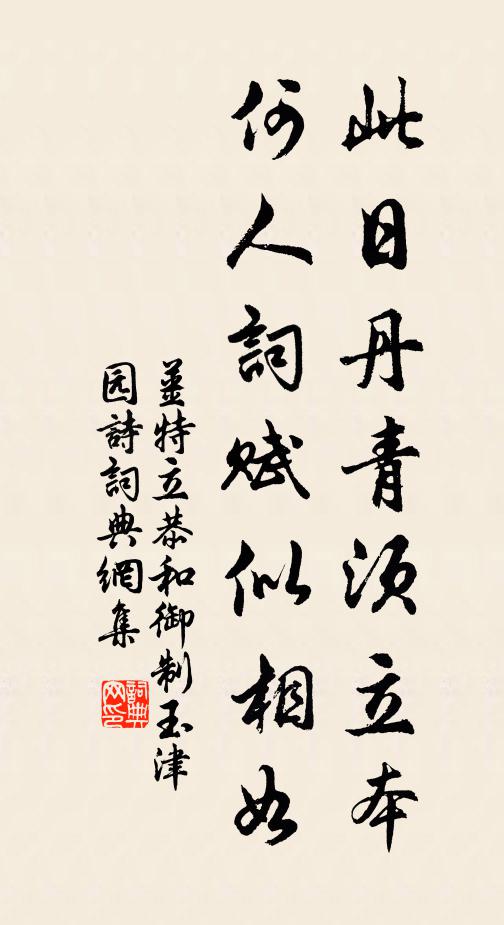 此日丹青须立本
何人詞赋似相如
薑特立恭和御制玉津
园詩詞典網集
詞典
网印